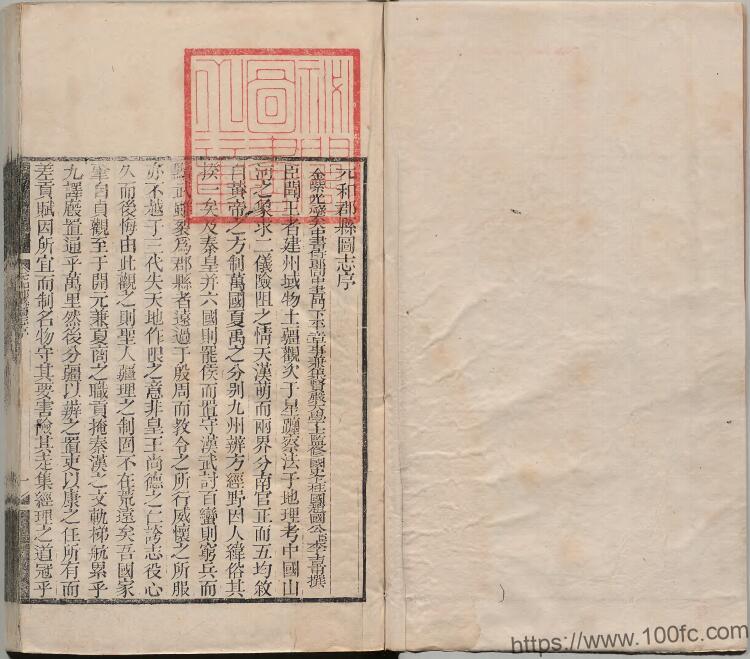 元和郡縣圖志序
金紫光祿大夫中書侍郎同中書門下平章事兼集賢殿大學士監修國史上柱國趙國公李吉甫撰
臣聞王者建州域物土疆觀次于星躔察法于地理考中國山
河之象求二儀險阻之情天漢萌而兩界分南官正而五均敘
自黃帝之方制萬國夏禹之分別九州辨方經野因人緯俗其
揆一矣及秦皇并六國則罷侯而置守漢武討百蠻則窮兵而
黷武雖蠻爲郡縣者遠過于殷周而教令之所行威懷之所服
亦不越于三代失天地作限之意非皇王尚德之仁誇志役心
久而後悔由此觀之則聖人疆理之制固不在荒遠矣吾國家
肇自貞觀至于開元兼夏商之職貢掩秦漢之文軌梯航累乎
九譯廄置通乎萬里然後分疆以辨之置吏以康之任所有而
差貢賦因所宜而制名物守其要害險其走集經理之道冠乎
https://www.100fc.com